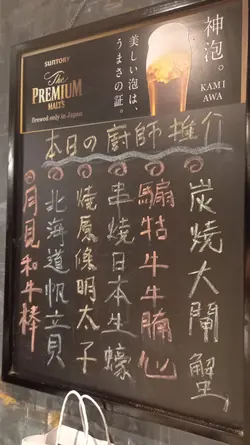 SUNTORY
The
PREMIUM
MALT'S
Brewed only in Japan
美しい泡は、
うまさの証。
神泡。
KAMI
AWA
本日の廚師推介
炭燒大閘蟹
騸牯牛牛腩心
串燒日本生蠔
燒原條明太子
北海道帆立貝
月見和牛棒